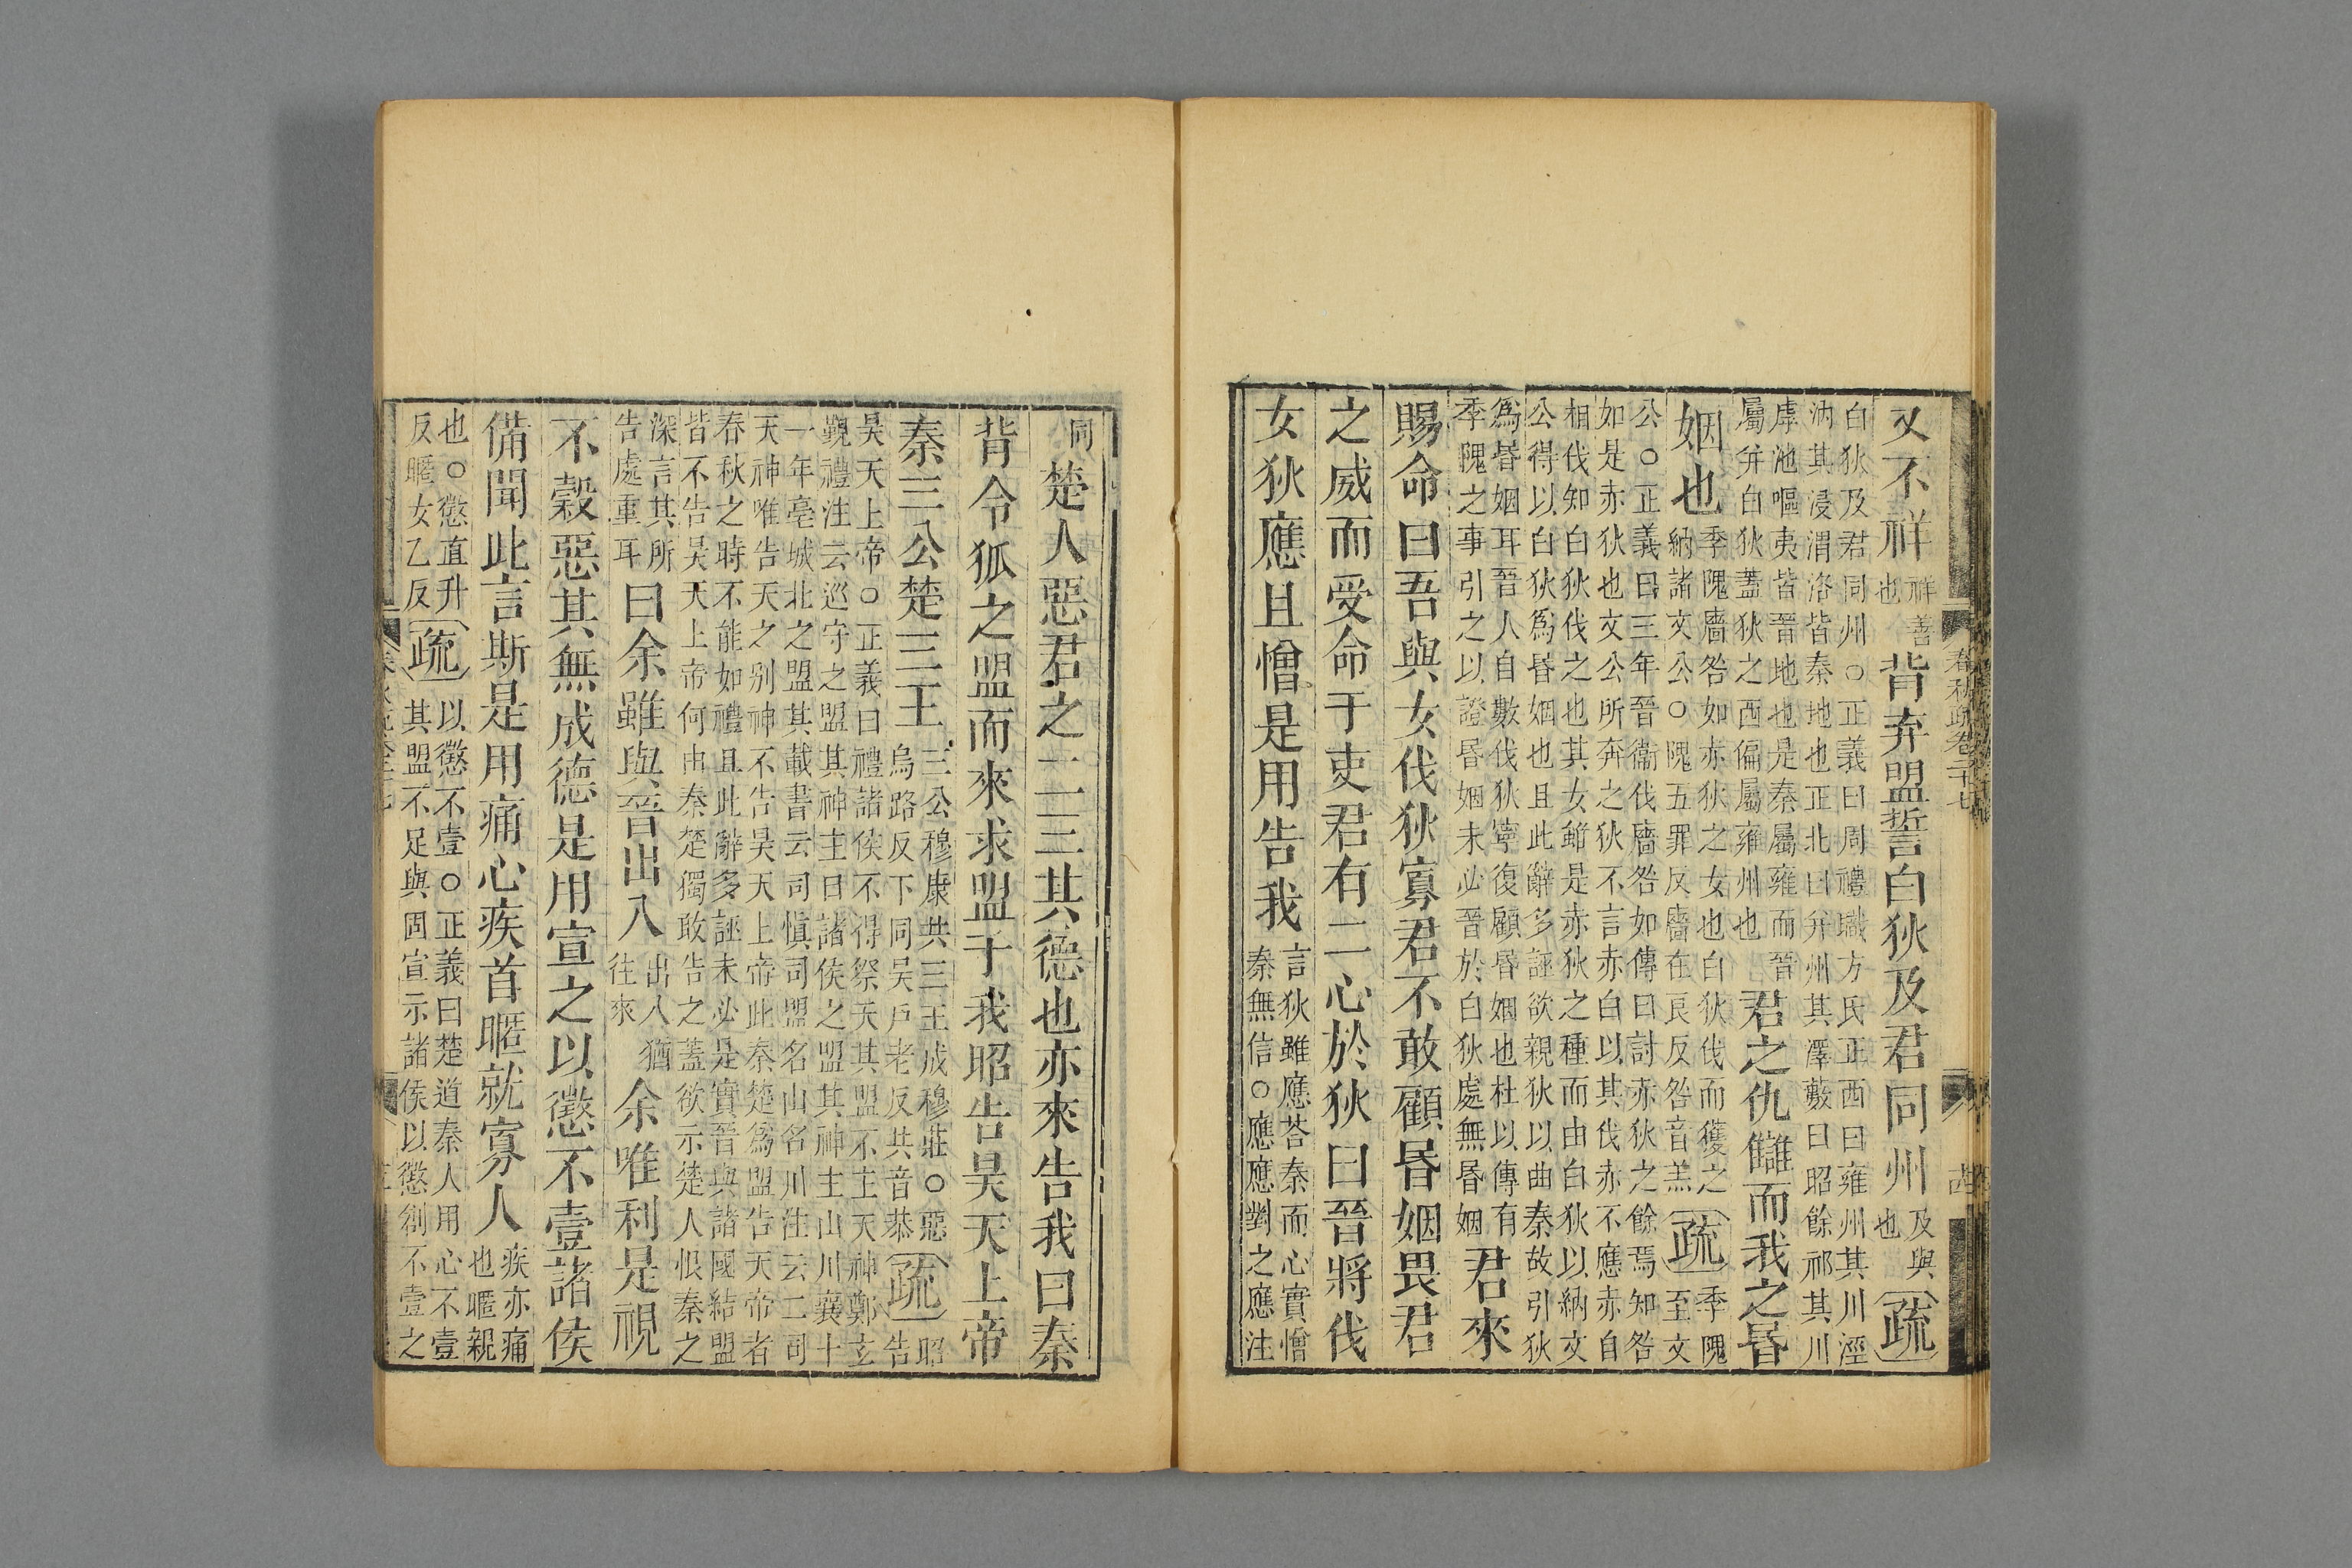 又不祥祥善也背弃盟誓白狄及君同州及與也疏
白狄及君同州○正義曰周禮職方氏正西曰雍州其川涇
汭其浸渭洛皆秦地也正北曰并州其澤藪曰昭餘祁其川
虖池嘔夷皆晉地也是秦屬雍而晉
屬并白狄蓋狄之西偏屬雍州也
君之仇讎而我之昬
姻也季隗廧咎如赤狄之女也白狄伐而獲之納諸文公○隗五罪反廧在良反咎音羔疏季隗至文
公○正義曰三年晉衞伐廧咎如傳曰討赤狄之餘焉知咎
如是赤狄也文公所奔之狄不言赤白以其伐赤不應赤自
相伐知白狄伐之也其女雖是赤狄之種而由白狄以納文
公得以白狄爲昬姻也且此辭多誣欲親狄以曲秦故引狄
爲昬姻耳晉人自數伐狄寧復顧昬姻也杜以傳有
季隗之事引之以證昬姻未必晉於白狄處無昬姻
君來
賜命曰吾與女伐狄寡君不敢顧昬姻畏君
之威而受命于吏君有二心於狄曰晉將伐
女狄應且憎是用告我言狄雖應荅秦而心實憎秦無信○應應對之應注
同楚人惡君之二三其德也亦來告我曰秦
背令狐之盟而來求盟于我昭告昊天上帝
秦三公楚三王三公穆康共三王成穆莊○惡烏路反下同昊戶老反共音恭疏昭告
昊天上帝○正義曰禮諸侯不得祭天其盟不主天神鄭玄
覲禮注云巡守之盟其神主日諸侯之盟其神主山川襄十
一年亳城北之盟其載書云司愼司盟名山名川注云二司
天神唯告天之別神不告昊天上帝此秦楚爲盟告天帝者
春秋之時不能如禮且此辭多誣未必是實晉與諸國結盟
皆不告昊天上帝何由秦楚獨敢告之蓋欲示楚人恨秦之
深言其所
告處重耳
曰余雖與晉出入出入猶往來余唯利是視
不穀惡其無成德是用宣之以懲不壹諸侯
備聞此言斯是用痛心疾首暱就寡人疾亦痛也暱親
也○懲直升反暱女乙反疏以懲不壹○正義曰楚道秦人用心不壹其盟不足與固宣示諸侯以懲創不壹之
春秋疏卷二十七